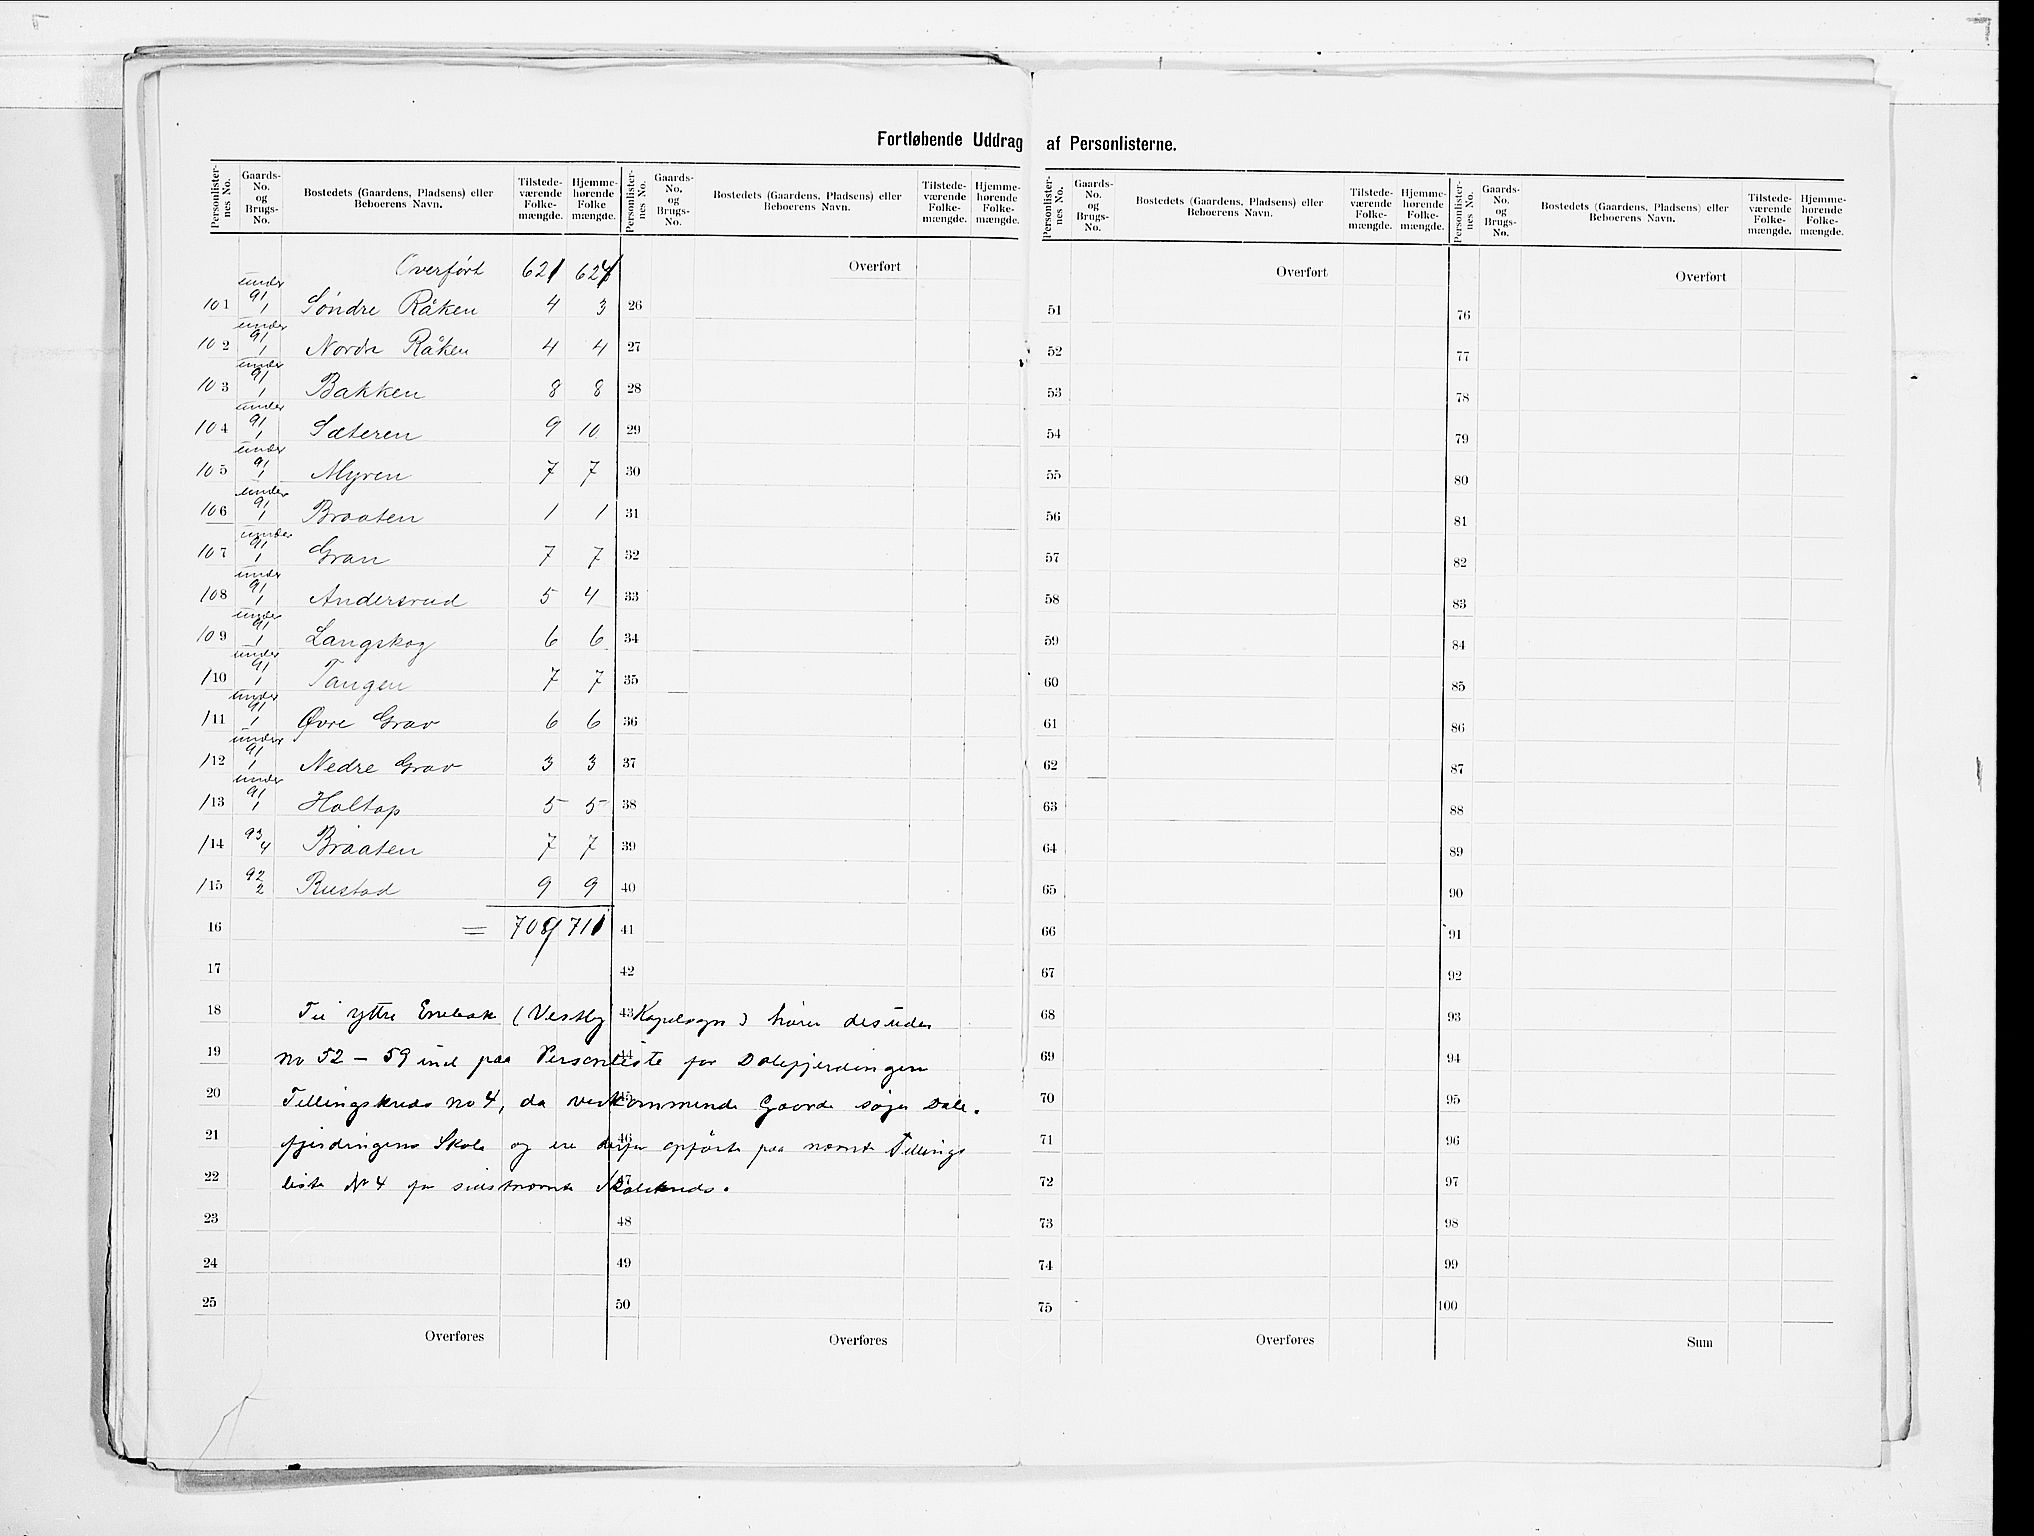 Fortløbende Uddrag af Personlisterne.
Personlister-nes No. | Gaards-No. og Brugs-No. | Bostedets (Gaardens, Pladsens) eller Beboerens Navn. | Tilstede-værende Folke-mængde. | Hjemme-hørende Folke mængde.
Personlister-nes No. | Gaards-No. og Brugs-No. | Bostedets (Gaardens, Pladsens) eller Beboerens Navn. | Tilstede-værende Folke-mængde. | Hjemme-hørende Folke-mængde.
Personlister-nes No. | Gaards-No. og Brugs-No. | Bostedets (Gaardens, Pladsens) eller Beboerens Navn. | Tilstede-værende Folke-mængde. | Hjemme-hørende Folke-mængde.
Personlister-nes No. | Gaards-No. og Brugs-No. | Bostedets (Gaardens, Pladsens) eller Beboerens Navn. | Tilstede-værende Folke-mængde. | Hjemme-hørende Folke-mængde.
Overført 621 Overført Overført Overført
101 under 91/1 Söndre Råken 4 3 26 51 76
102 under 91/1 Nordre Råken 4 4 27 52 77
103 under 91/1 Bakken 8 8 28 53 78
104 under 91/1 Sæteren 9 10 29 54 79
105 under 91/1 Myren 7 7 30 55 80
106 under 91/1 Braaten 1 1 31 56 81
107 under 91/1 Gran 7 7 32 57 82
108 under 91/1 Andersrud 5 4 33 58 83
109 under 91/1 Langskog 6 6 34 59 84
110 under 91/1 Tangen 7 7 35 60 85
111 under 91/1 Øvre Grav 6 6 36 61 86
112 under 91/1 Nedre Grav 3 3 37 62 87
113 under 91/1 Holtop 5 5 38 63 88
114 93/4 Braaten 7 7 39 64 89
115 92/2 Rustad 9 9 40 65 90
16 = 709 711 41 66 91
17 42 67 92
18 Til yttre Enebak (Vestby Kapelsogn) hører desuden 43 68 93
19 no 52 – 59 incl paa Personliste for Dalefjerdingen 44 69 94
20 Tellingskreds no 4, da vedkommende Gaarde søger Dale- 45 70 95
21 fjerdingens Skole og ere derfor opførte paa nævnte Tellings 46 71 96
22 liste No 4 for sidstnævnte Skolekreds. 47 72 97
23 48 73 98
24 49 74 99
25 50 75 100
Overføres Overføres Overføres Sum